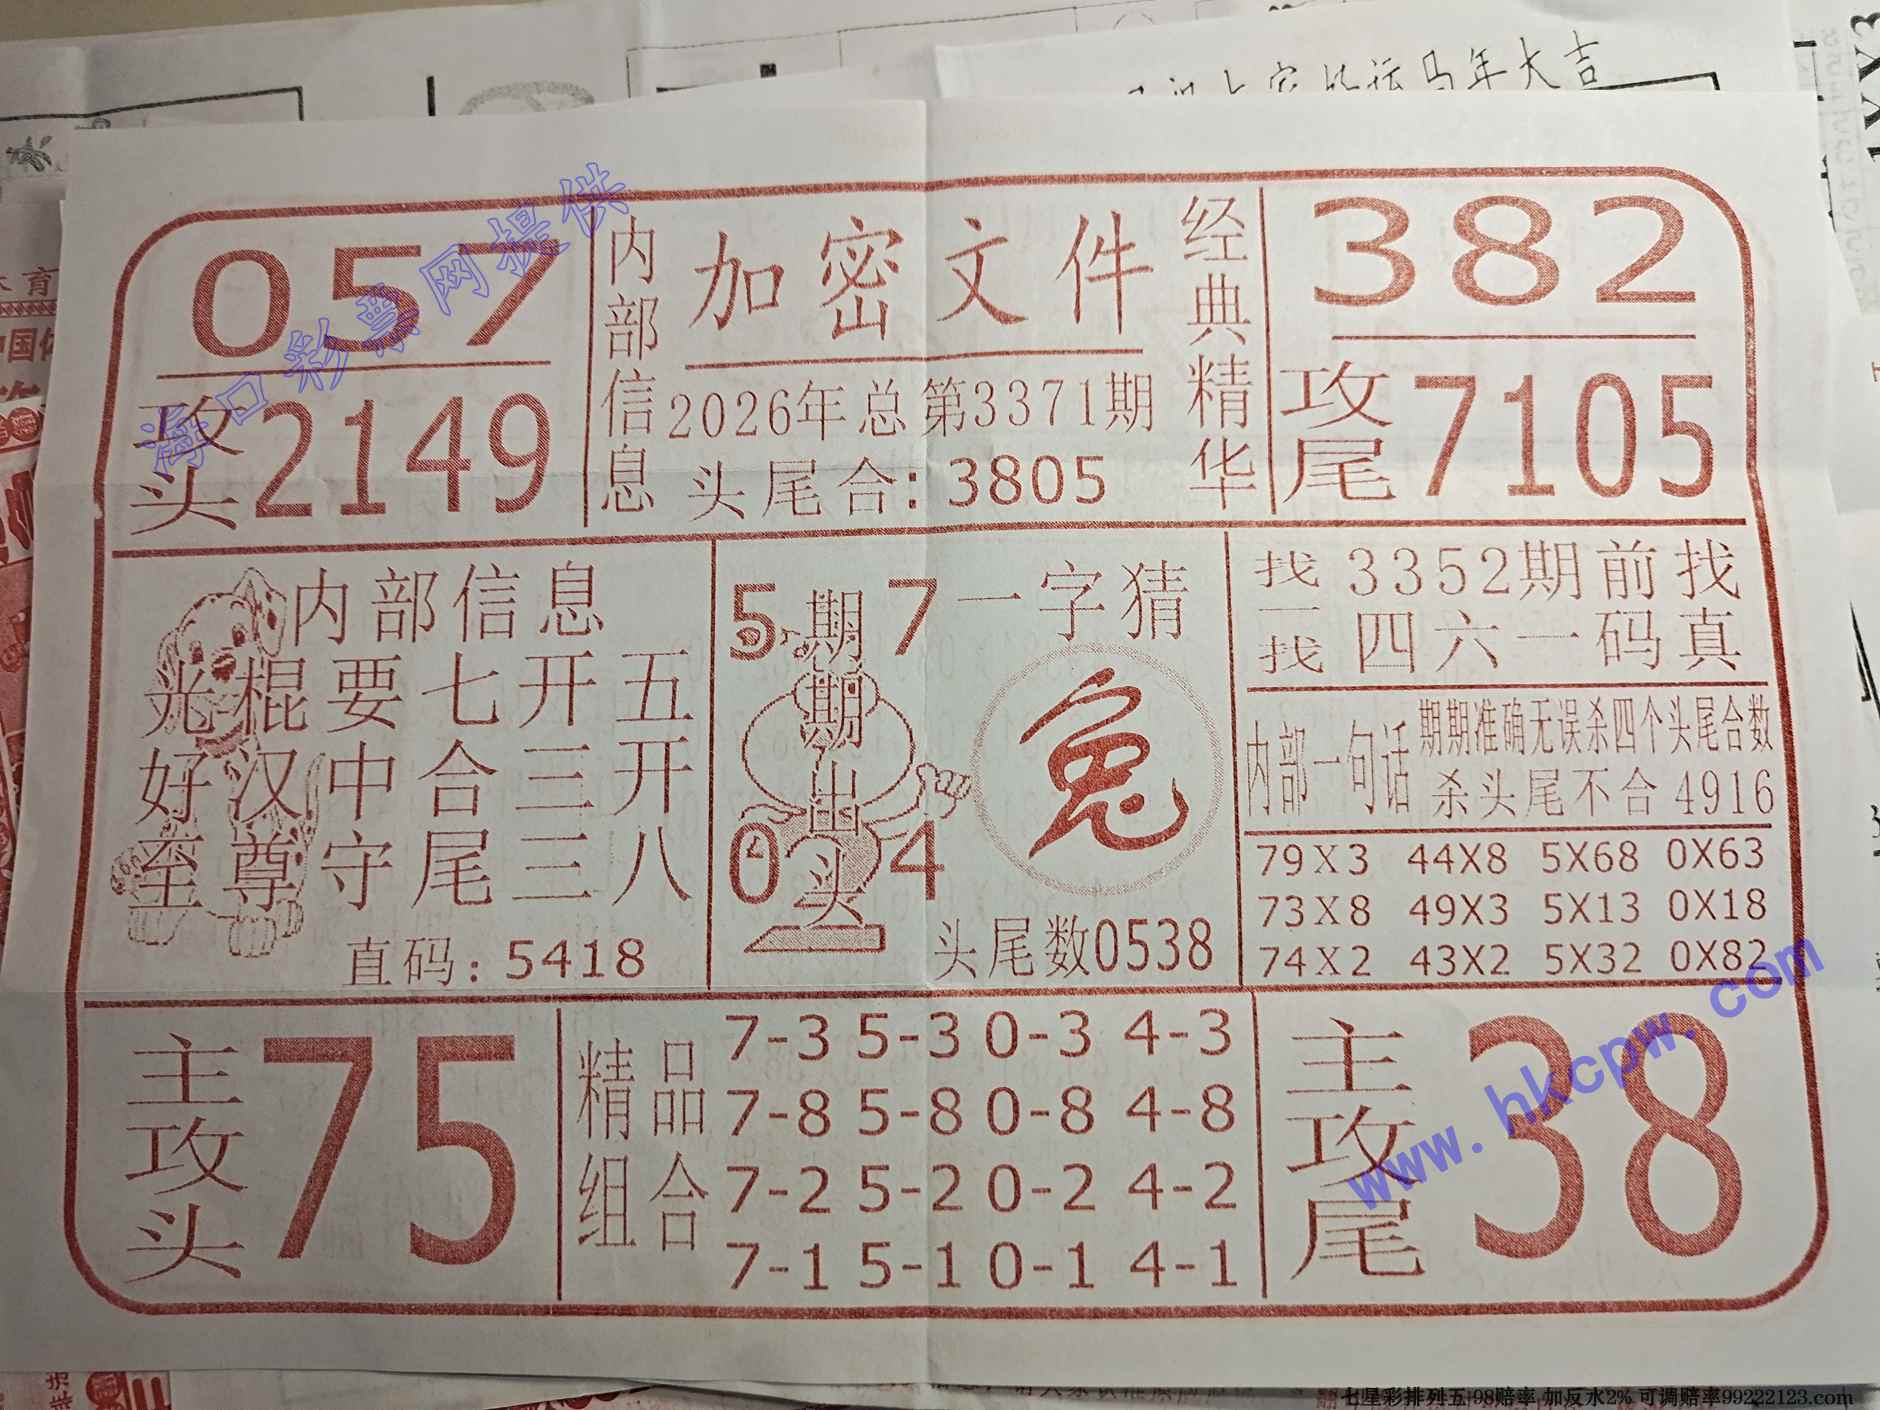 马年大吉
057
攻头 2149
内部信息
加密文件
2026年总第3371期
头尾合: 3805
经典精华
382
攻尾 7105
内部信息
光棍要七开五
好汉中合三开
至尊守尾三八
直码: 5418
5 7
期期出头
0 4
一字猜
兔
头尾数0538
找一找
3352期前找
四六一码真
内部一句话
期期准确无误杀四个头尾合数
杀头尾不合 4916
79X3 44X8 5X68 0X63
73X8 49X3 5X13 0X18
74X2 43X2 5X32 0X82
主攻头 75
精品组合
7-3 5-3 0-3 4-3
7-8 5-8 0-8 4-8
7-2 5-2 0-2 4-2
7-1 5-1 0-1 4-1
主攻尾 38
海口彩票网提供
www.hkcpw.com
七星彩排列五98赔率 加反水2% 可调赔率99222123.com